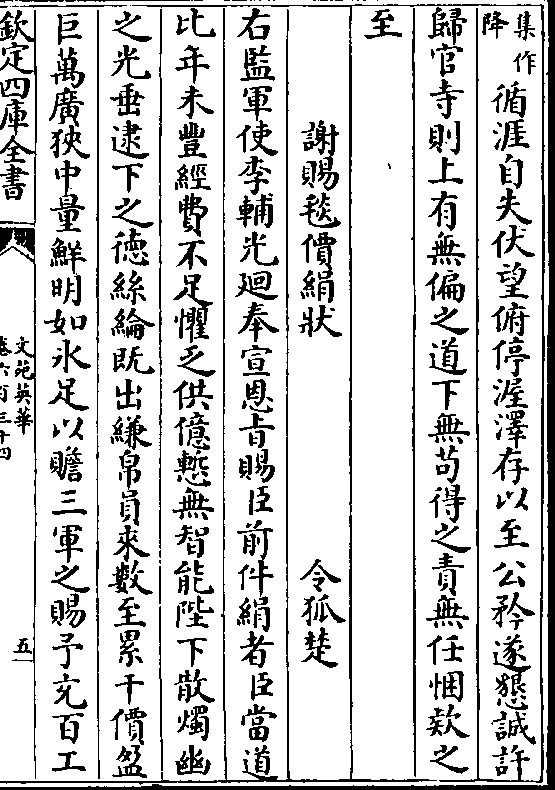 集作
降
循涯自失伏望俯停渥澤存以至公矜遂懇誠許
歸官寺則上有無偏之道下無苟得之責無任悃欵之
至
謝賜毯價絹狀　令狐楚
右監軍使李輔光廻奉宣恩旨賜臣前件絹者臣當道
比年未豐經費不足懼乏供億慙無智能陛下散燭幽
之光垂逮下之徳絲綸既出縑帛員來數至累千價盈
巨萬廣狹中量鮮明如氷足以贍三軍之賜予充百工
欽定四庫全書
文苑英華
卷六百三十四
五